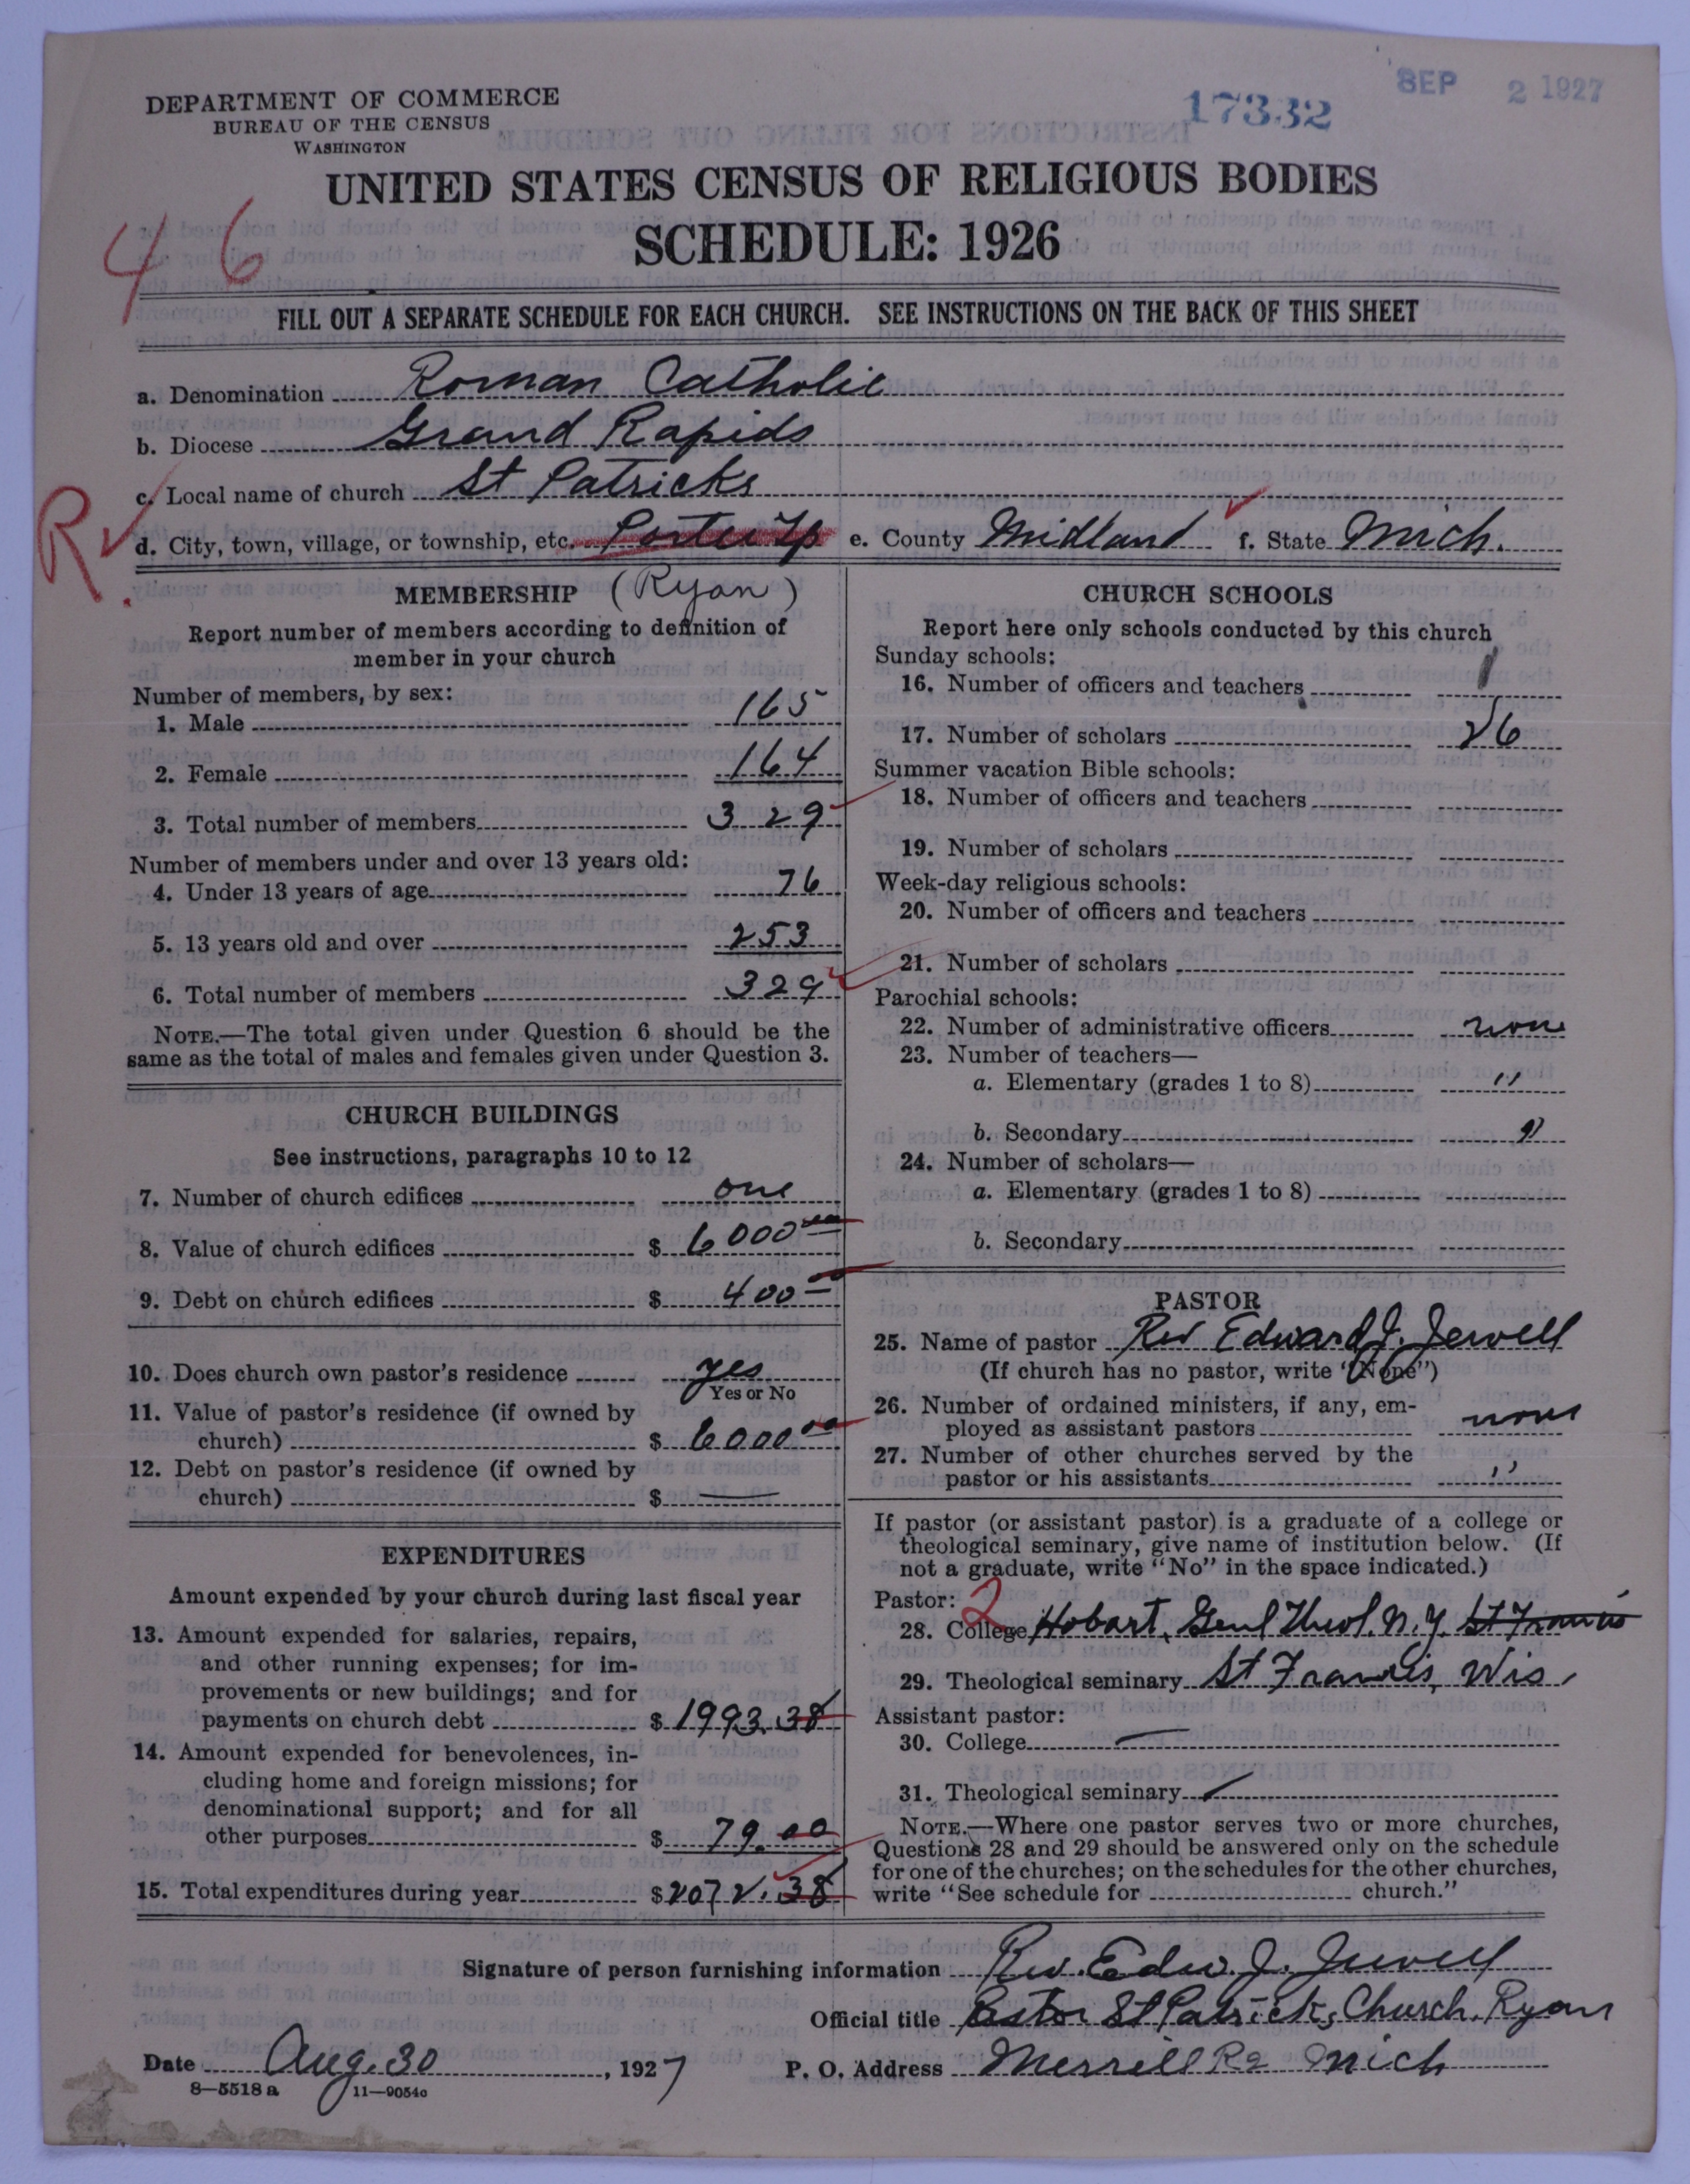 SEP 2 1927
17332
DEPARTMENT OF COMMERCE
BUREAU OF THE CENSUS
WASHINGTON
UNITED STATES CENSUS OF RELIGIOUS BODIES
SCHEDULE: 1926
46
FILL OUT A SEPARATE SCHEDULE FOR EACH CHURCH. SEE INSTRUCTIONS ON THE BACK OF THIS SHEET
a. Denomination Roman Catholic
b. Diocese Grand Rapids
c. Local name of church St Patricks
R.
d. City, town, village, or township, etc. Porter Tp e. County Midland f. State Mich.
MEMBERSHIP (Ryan)
Report number of members according to definition of
member in your church
Number of members, by sex:
1. Male 165
2. Female 164
3. Total number of members 329
Number of members under and over 13 years old:
4. Under 13 years of age 76
5. 13 years old and over 253
6. Total number of members 329
NOTE.—The total given under Question 6 should be the
same as the total of males and females given under Question 3.
CHURCH BUILDINGS
See instructions, paragraphs 10 to 12
7. Number of church edifices one
8. Value of church edifices $ 6000 00
9. Debt on church edifices $ 400 00
10. Does church own pastor's residence yes
Yes or No
11. Value of pastor's residence (if owned by
church) $ 6000 00
12. Debt on pastor's residence (if owned by
church) $ —
EXPENDITURES
Amount expended by your church during last fiscal year
13. Amount expended for salaries, repairs,
and other running expenses; for im-
provements or new buildings; and for
payments on church debt $ 1993.38
14. Amount expended for benevolences, in-
cluding home and foreign missions; for
denominational support; and for all
other purposes $ 79.00
15. Total expenditures during year $ 2072.38
CHURCH SCHOOLS
Report here only schools conducted by this church
Sunday schools:
16. Number of officers and teachers 1
17. Number of scholars 26
Summer vacation Bible schools:
18. Number of officers and teachers
19. Number of scholars
Week-day religious schools:
20. Number of officers and teachers
21. Number of scholars
Parochial schools:
22. Number of administrative officers none
23. Number of teachers—
a. Elementary (grades 1 to 8) "
b. Secondary "
24. Number of scholars—
a. Elementary (grades 1 to 8)
b. Secondary
PASTOR
25. Name of pastor Rev Edward J. Jewell
(If church has no pastor, write "None")
26. Number of ordained ministers, if any, em-
ployed as assistant pastors none
27. Number of other churches served by the
pastor or his assistants "
If pastor (or assistant pastor) is a graduate of a college or
theological seminary, give name of institution below. (If
not a graduate, write "No" in the space indicated.)
Pastor: 2
28. College Hobart, Genl Theol. N.Y. St Francis
29. Theological seminary St Francis, Wis.
Assistant pastor:
30. College —
31. Theological seminary
NOTE.—Where one pastor serves two or more churches,
Questions 28 and 29 should be answered only on the schedule
for one of the churches; on the schedules for the other churches,
write "See schedule for church."
Signature of person furnishing information Rev. Edw. J. Jewell
Official title Pastor St Patricks Church, Ryan
Date Aug. 30, 1927 P. O. Address Merrill R2 Mich
8—5518 a 11—9054c